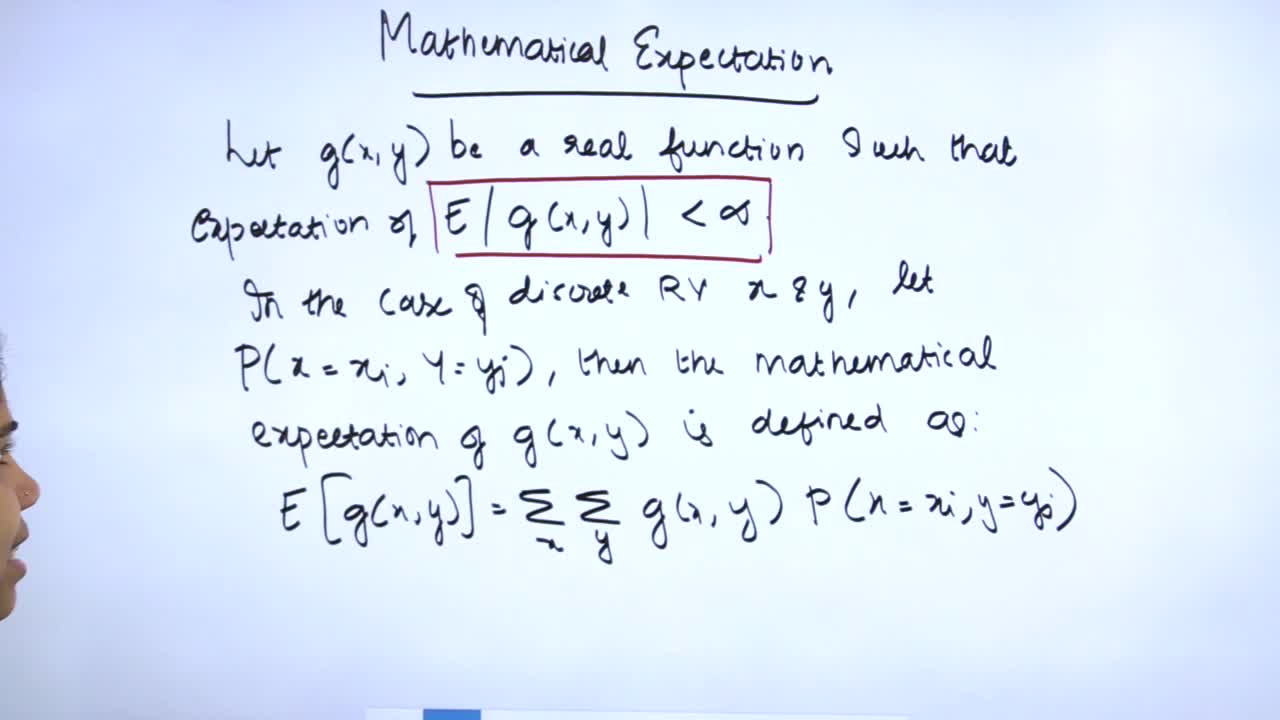 Mathematical Expectation
Let g(x, y) be a real function such that
Expectation of E|g(x, y)| < ∞
In the case of discrete RV x & y, let
P(x = xi, Y = yj), then the mathematical
expectation of g(x, y) is defined as:
E[g(x, y)] = Σx Σy g(x, y) P(x = xi, y = yj)